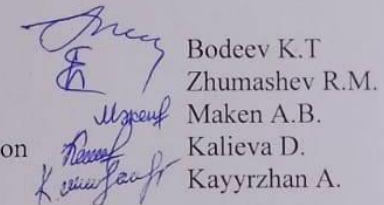 Bodeev K.T
Zhumashev R.M.
Maken A.B.
on Kalieva D.
Kayyrzhan A.